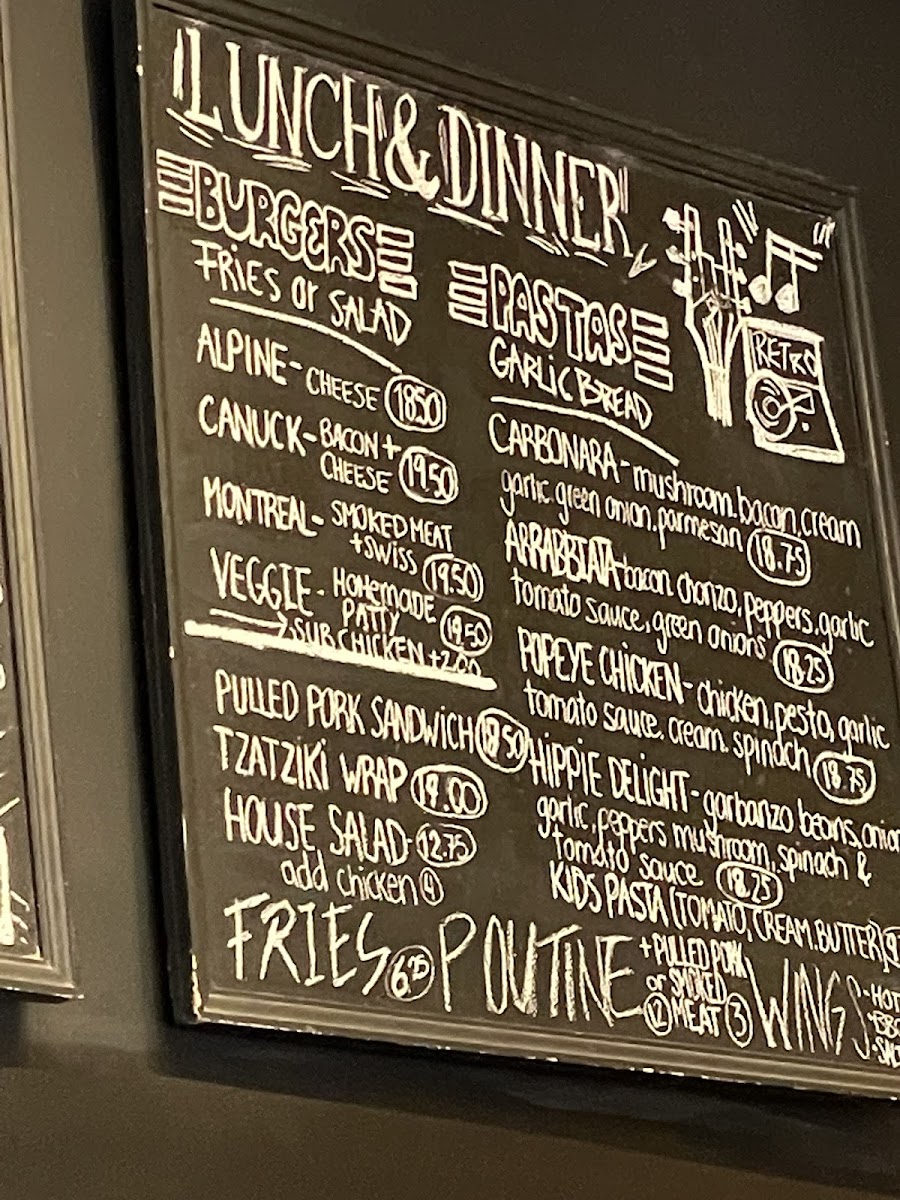 "LUNCH & DINNER"
BURGERS
FRIES or SALAD
ALPINE - CHEESE 1850
CANUCK - BACON +
CHEESE 19.50
MONTREAL - SMOKED MEAT
+ SWISS 19.50
VEGGIE - HOMEMADE
PATTY 19.50
SUB CHICKEN +2.00
PULLED PORK SANDWICH 18.50
TZATZIKI WRAP 19.00
HOUSE SALAD 12.75
add chicken 4
PASTAS
GARLIC BREAD
CARBONARA - mushroom, bacon, cream
garlic, green onion, parmesan 18.75
ARRABBIATA - bacon, chorizo, peppers, garlic
tomato sauce, green onions 18.25
POPEYE CHICKEN - chicken, pesto, garlic
tomato sauce, cream, spinach 18.75
HIPPIE DELIGHT - garbanzo beans, onion
garlic, peppers mushroom, spinach &
tomato sauce 18.25
KIDS PASTA (TOMATO, CREAM, BUTTER)
RETRO
FRIES 6.75 POUTINE 12
+ PULLED PORK
or SMOKED
MEAT 3
WINGS
- HOT